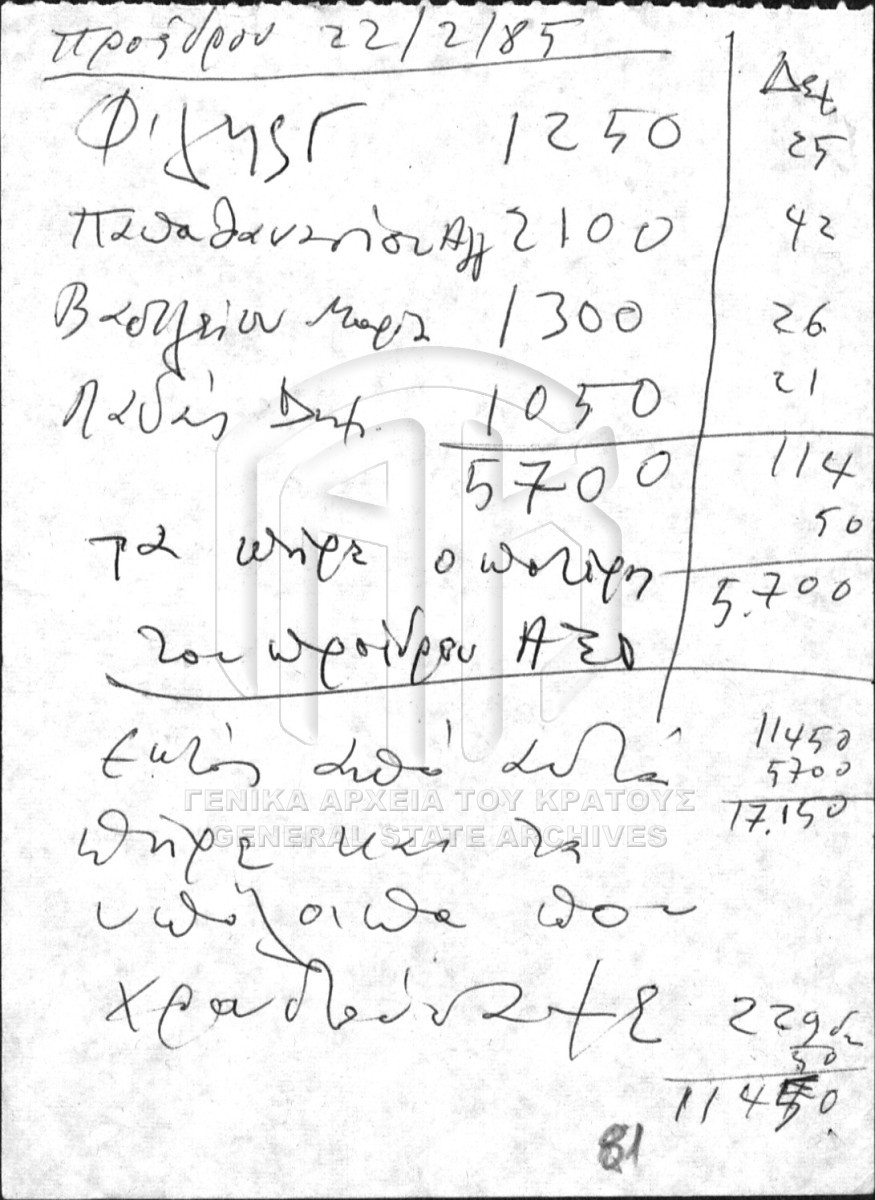 Προέδρου 22/2/85
Δεχ
1250 25
Παπαθανασίου Αγγ 2100 42
Βασιλείου Μαρία 1300 26
Δημ. 1050 21
5700 114
50
5.700
τα πήρε ο πατέρας
του προέδρου ΑΞΟ
Εκτός από αυτά
11450
5700
17.150
ΓΕΝΙΚΑ ΑΡΧΕΙΑ ΤΟΥ ΚΡΑΤΟΥΣ
GENERAL STATE ARCHIVES
πήρε και τα
υπόλοιπα που
χρωστούσαμε 229
50
11450
81